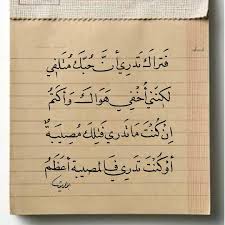 فتراك تدري أنَّ حبك متلفي
لكنني أخفي هواك وأكتم
إن كنت ما تدري فتلك مصيبةٌ
أو كنت تدري فالمصيبة أعظم